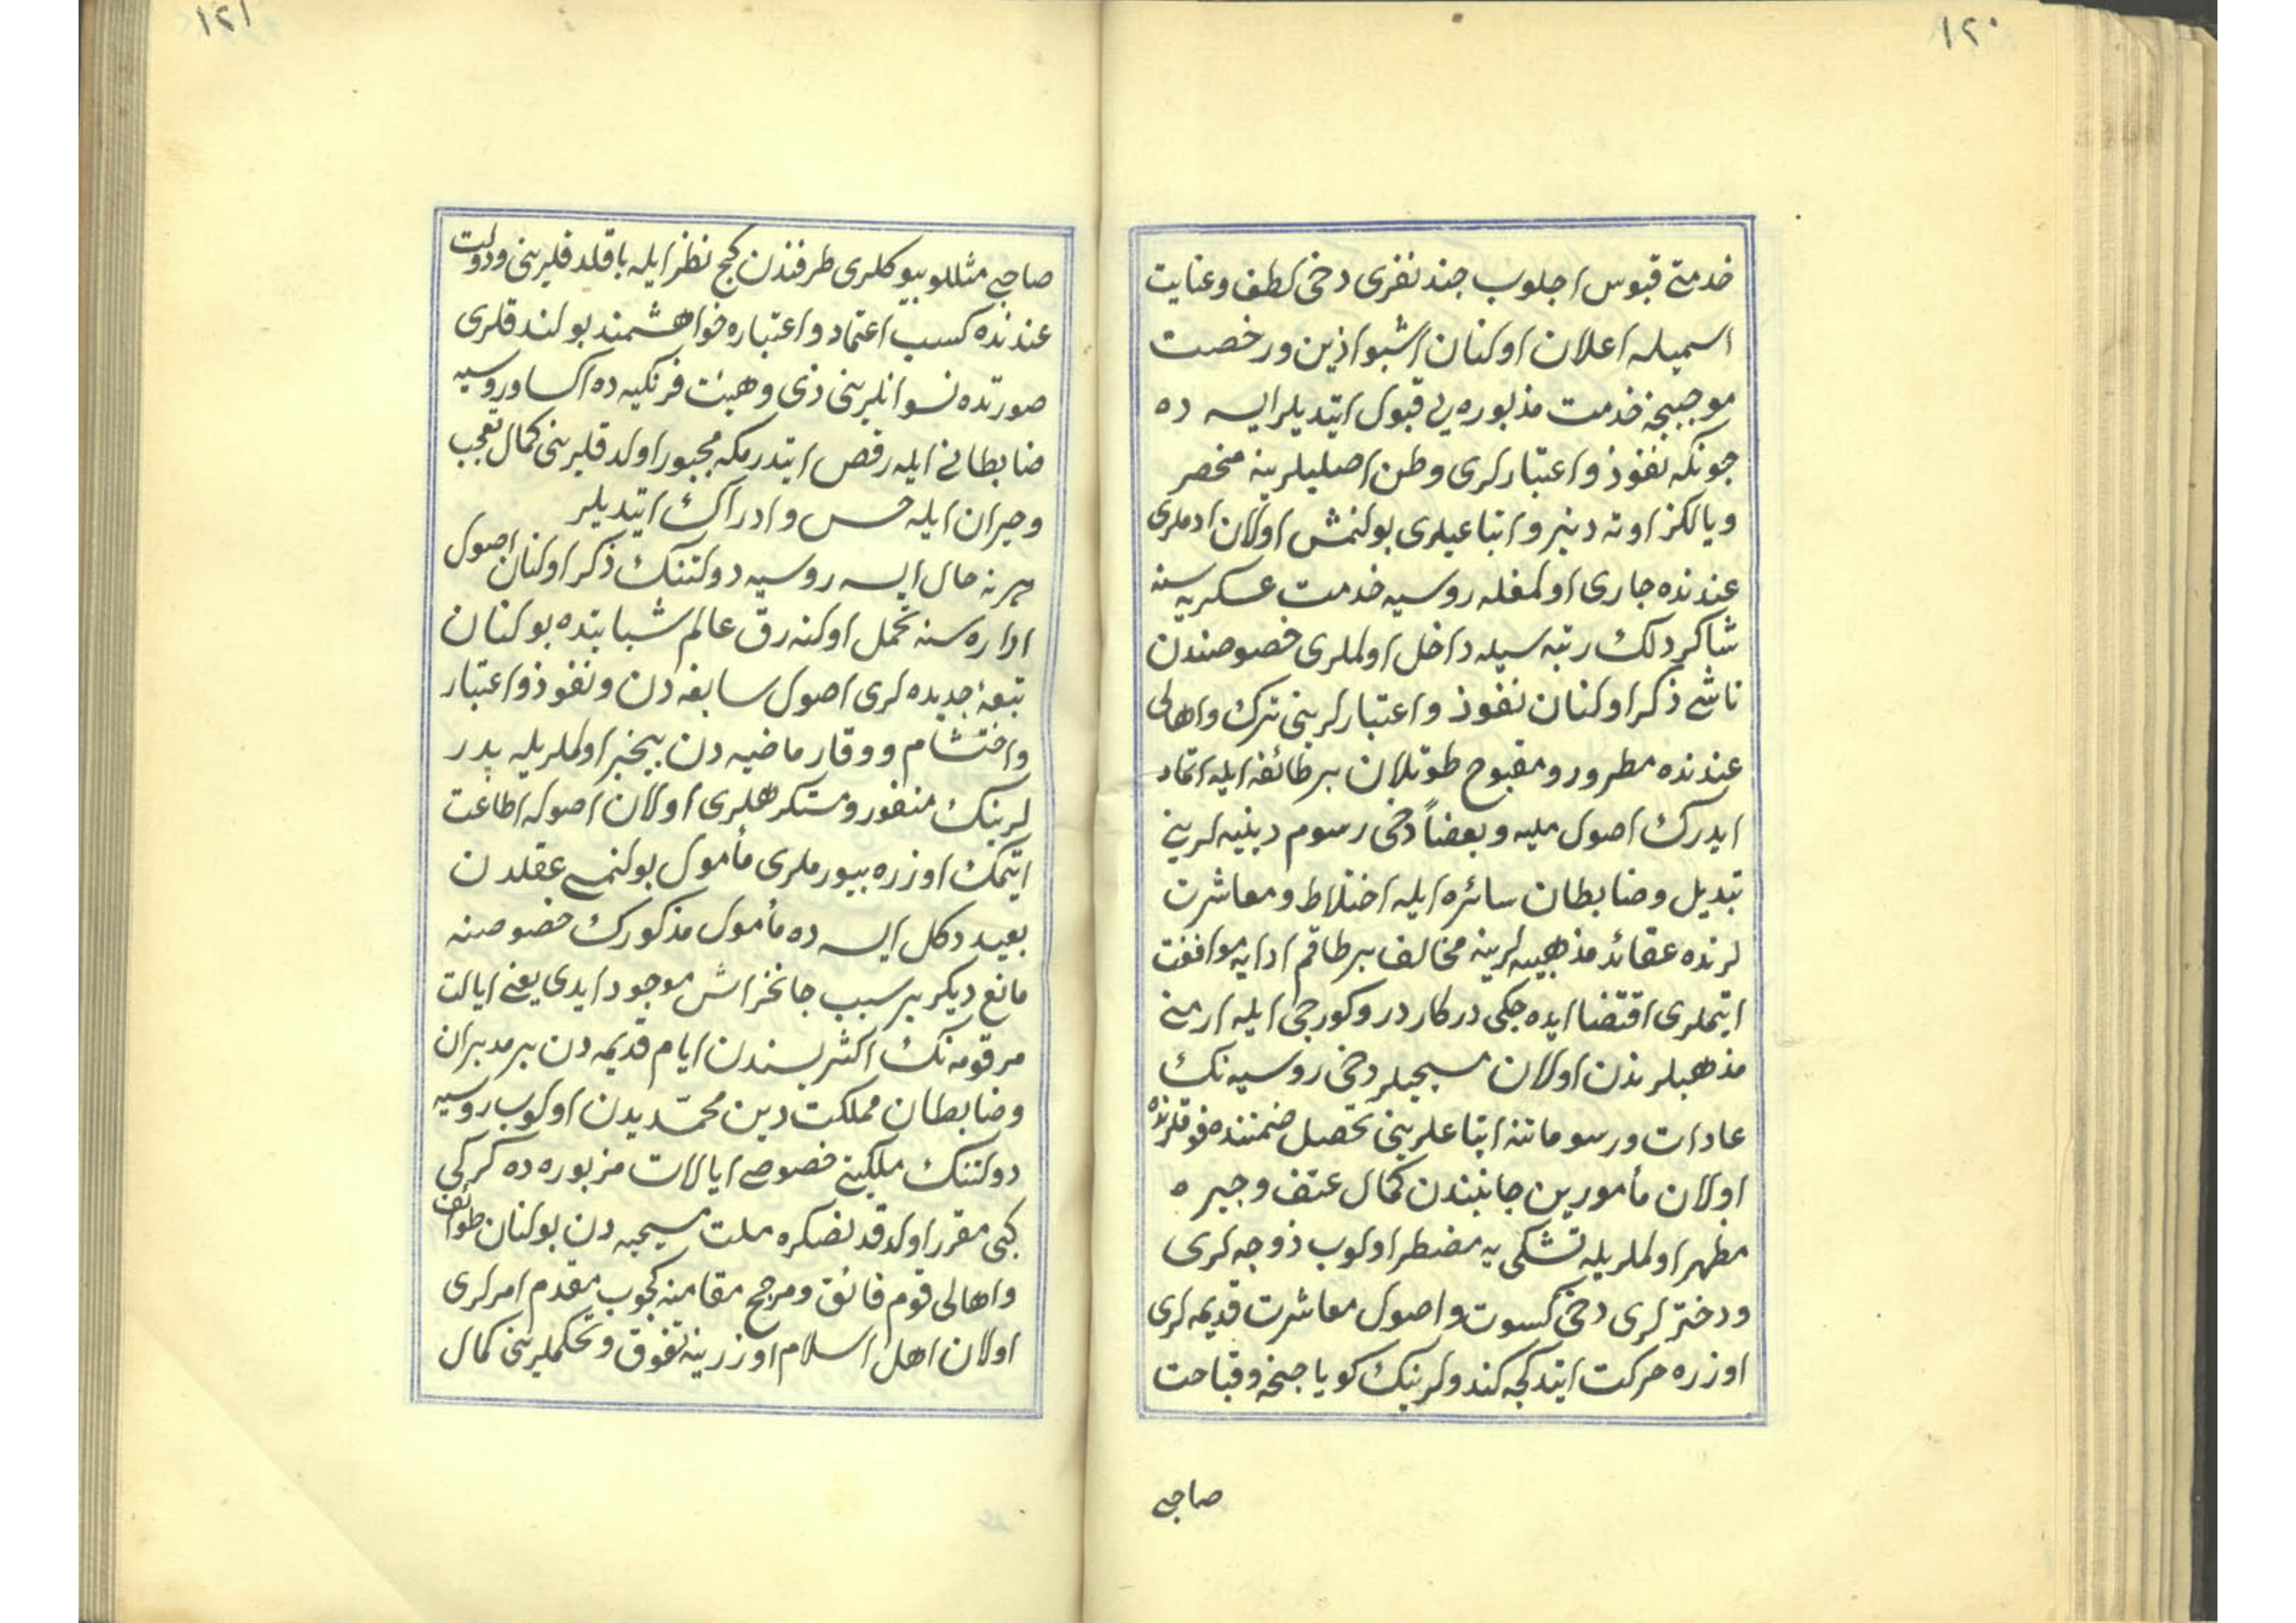 ١٢٠
خدمتے قپوس اچلوب چند نفری دخی لطف وعنایت
اسمیله اعلان اولنان اشبو اذین ورخصت
موجبنجه خدمت مذبوره یی قبول ایتدیلر ایسه ده
چونکه نفوذ واعتبارلری وطن اصلیلرینه منحصر
ویالکز اوته دنبرو اتباعیلری بولنمش اولان ادملری
عندنده جاری اولمغله روسیه خدمت عسکریه سنه
شاکردلک رتبه سیله داخل اولملری خصوصندن
ناشی ذکر اولنان نفوذ واعتبارلرینی ترک واهالی
عندنده مطرود ومقبوح طوتلان بر طائفه ایله اتحاد
ایدرک اصول ملیه وبعضاً دخی رسوم دینیه لرینی
تبدیل وضابطان سائره ایله اختلاط ومعاشرت
لرنده عقائد مذهبیه لرینه مخالف بر طاقم ادایه موافقت
ایتملری اقتضا ایده جکی درکار در وکورجی ایله ارمنی
مذهبلرندن اولان مسیحیلر دخی روسیه نک
عادات ورسوماتنه اتباعلرینی تحصیل ضمننده فوقلرنده
اولان مأمورین جانبندن کمال عنف وجبره
مظهر اولملریله تشکی یه مضطر اولوب زوجه لری
ودخترلری دخی کسوت واصول معاشرت قدیمه لری
اوزره حرکت ایتدکجه کندولرینک کویا جنحه وقباحت
صاحبی
١٢١
صاحبی مثللو بیوکلری طرفندن کج نظر ایله باقلدقلرینی ودولت
عندنده کسب اعتماد واعتباره خواهشمند بولندقلری
صورتده نسوانلرینی زی وهیئت فرنکیه ده اکسا وروسیه
ضابطانی ایله رقص ایتدرمکه مجبور اولدقلرینی کمال تعجب
وحیران ایله حس وادراک ایتدیلر
هر نه حال ایسه روسیه دولتنک ذکر اولنان اصول
اداره سنه تحمل اولنه رق عالم شبابتده بولنان
تبعهٔ جدیده لری اصول سابقه دن ونفوذ واعتبار
واحتشام ووقار ماضیه دن بیخبر اولملریله پدر
لرینک منفور ومستکرهلری اولان اصوله اطاعت
ایتمک اوزره بیورملری مأمول بولنمسی عقلدن
بعید دکل ایسه ده مأمول مذکورک خصوصنه
مانع دیکر بر سبب جانخراش موجود ایدی یعنی ایالت
مرقومه نک اکثریسندن ایام قدیمه دن برو مدبران
وضابطان مملکت دین محمدیدن اولوب روسیه
دولتنک ملکیتی خصوصی ایالات مزبوره ده کرکی
کبی مقرر اولدقدنصکره ملت مسیحیه دن بولنان طوائف
واهالی قوم فائق ومرجح مقامنه کچوب مقدم امرلری
اولان اهل اسلام اوزرینه تفوق وتحکملرینی کمال